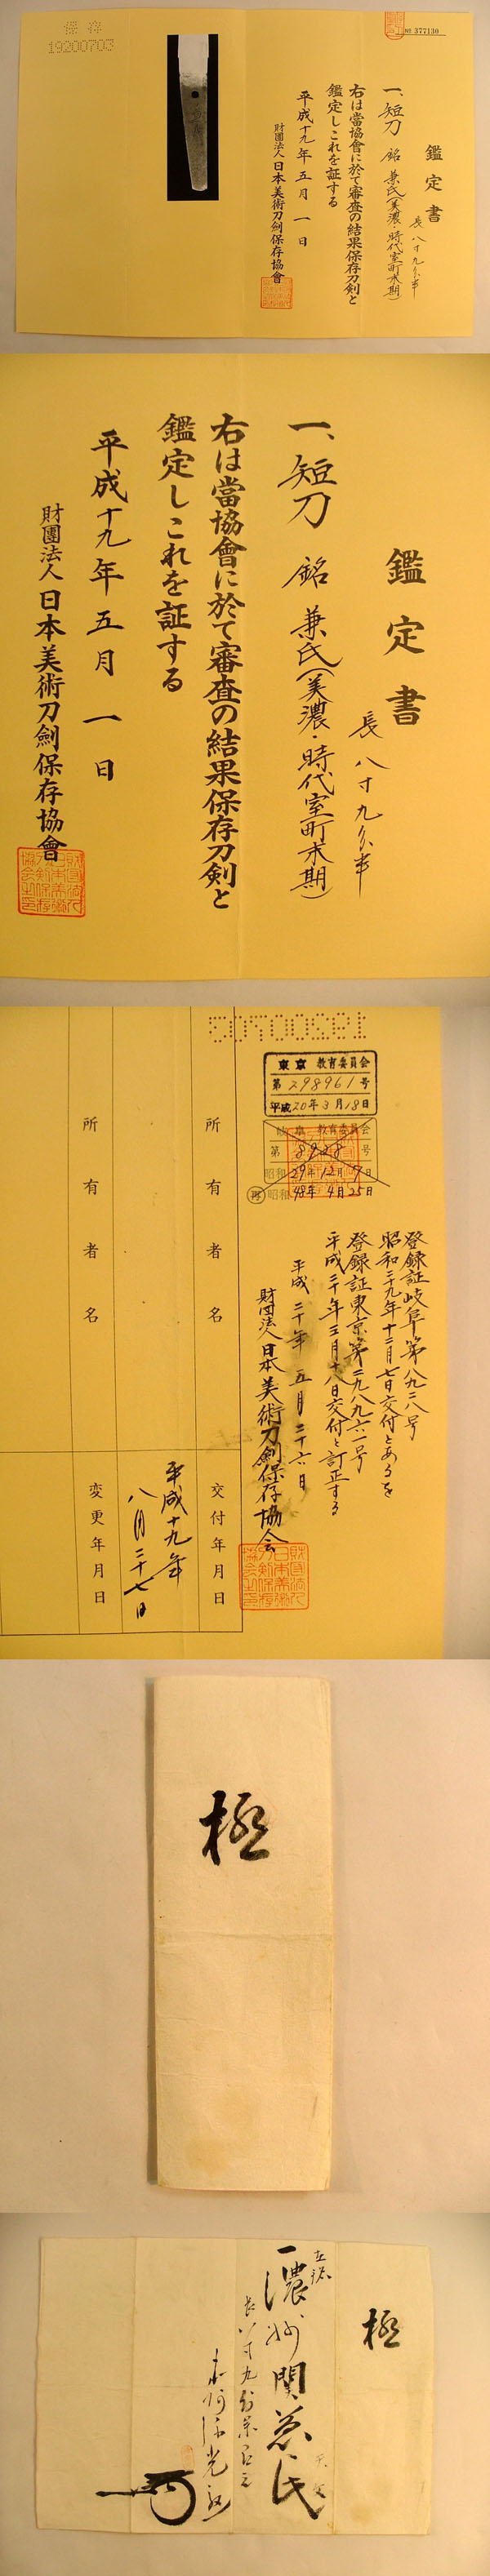 保存
19200703
№ 377130
鑑定書
一、短刀 銘 兼氏(美濃・時代室町末期)
長 八寸九分半
右は當協會に於て審査の結果保存刀剣と
鑑定しこれを証する
平成十九年五月一日
財團法人日本美術刀劍保存協會
鑑定書
長 八寸九分半
一、短刀 銘 兼氏(美濃・時代室町末期)
右は當協會に於て審査の結果保存刀剣と
鑑定しこれを証する
平成十九年五月一日
財團法人日本美術刀劍保存協會
19200703
東京 教育委員会
第298961号
平成20年3月18日
岐阜 教育委員会
第8928号
昭和29年12月7日
再 昭和48年4月25日
登録証岐阜第八九二八号
昭和二十九年十二月七日交付とあるを
登録証東京第二九八九六一号
平成二十年三月十八日交付と訂正する
平成二十年五月二十六日
財団法人日本美術刀剣保存協会
所有者名
交付年月日
平成十九年
八月二十七日
所有者名
変更年月日
極
極
濃州関兼氏